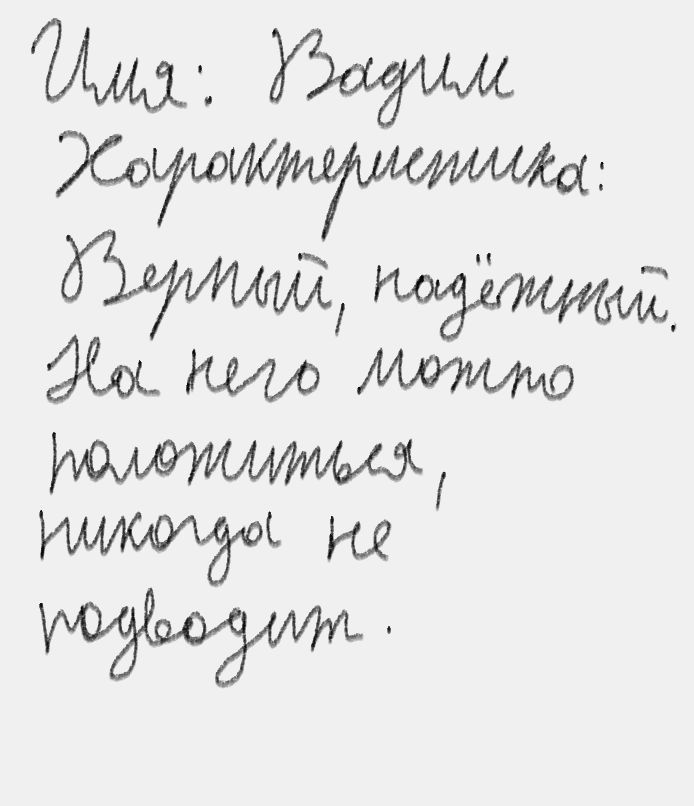 Имя: Вадим
Характеристика:
Верный, надёжный.
На него можно
положиться,
никогда не
подводит.